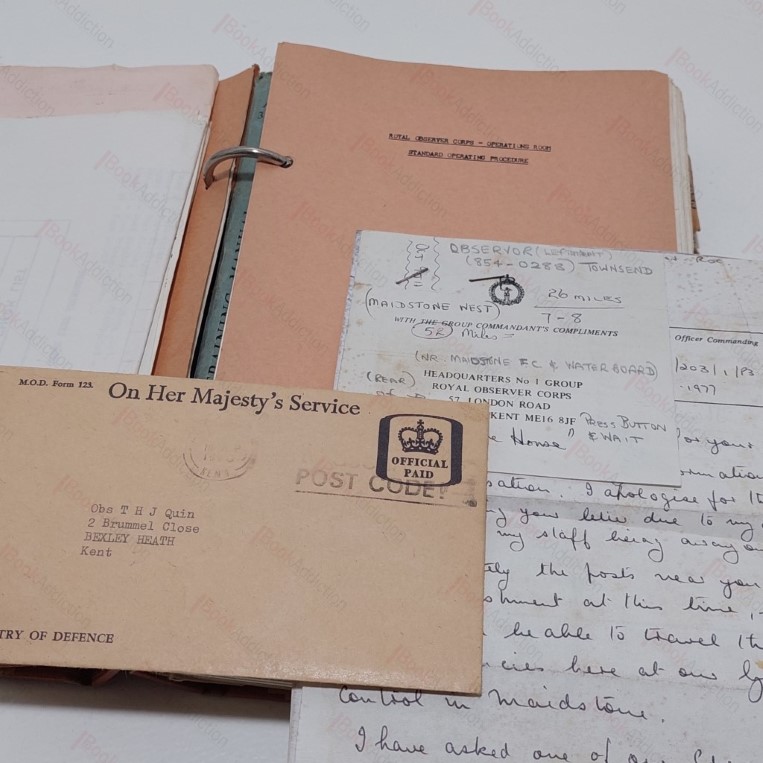 ROYAL OBSERVER CORPS - OPERATIONS ROOM
STANDARD OPERATING PROCEDURE
OBSERVOR (LEFTENANT)
(854-0288) TOWNSEND
26 MILES
7-8
(MAIDSTONE WEST)
WITH THE GROUP COMMANDANT'S COMPLIMENTS
52 Miles
(NR. MAIDSTONE FC & WATERBOARD)
(REAR)
HEADQUARTERS No 1 GROUP
ROYAL OBSERVER CORPS
57 LONDON ROAD
KENT ME16 8JF
PRESS BUTTON
& WAIT
House"
Officer Commanding
/203/1/P3
1977
for your
I apologise for
your letter due to my
my staff being away on
the posts near you
at this time
be able to travel
here at our
control in Maidstone.
I have asked one of our
M.O.D. Form 123.
On Her Majesty's Service
OFFICIAL
PAID
POST CODE
Obs T H J Quin
2 Brummel Close
BEXLEY HEATH
Kent
TRY OF DEFENCE
BookAddiction